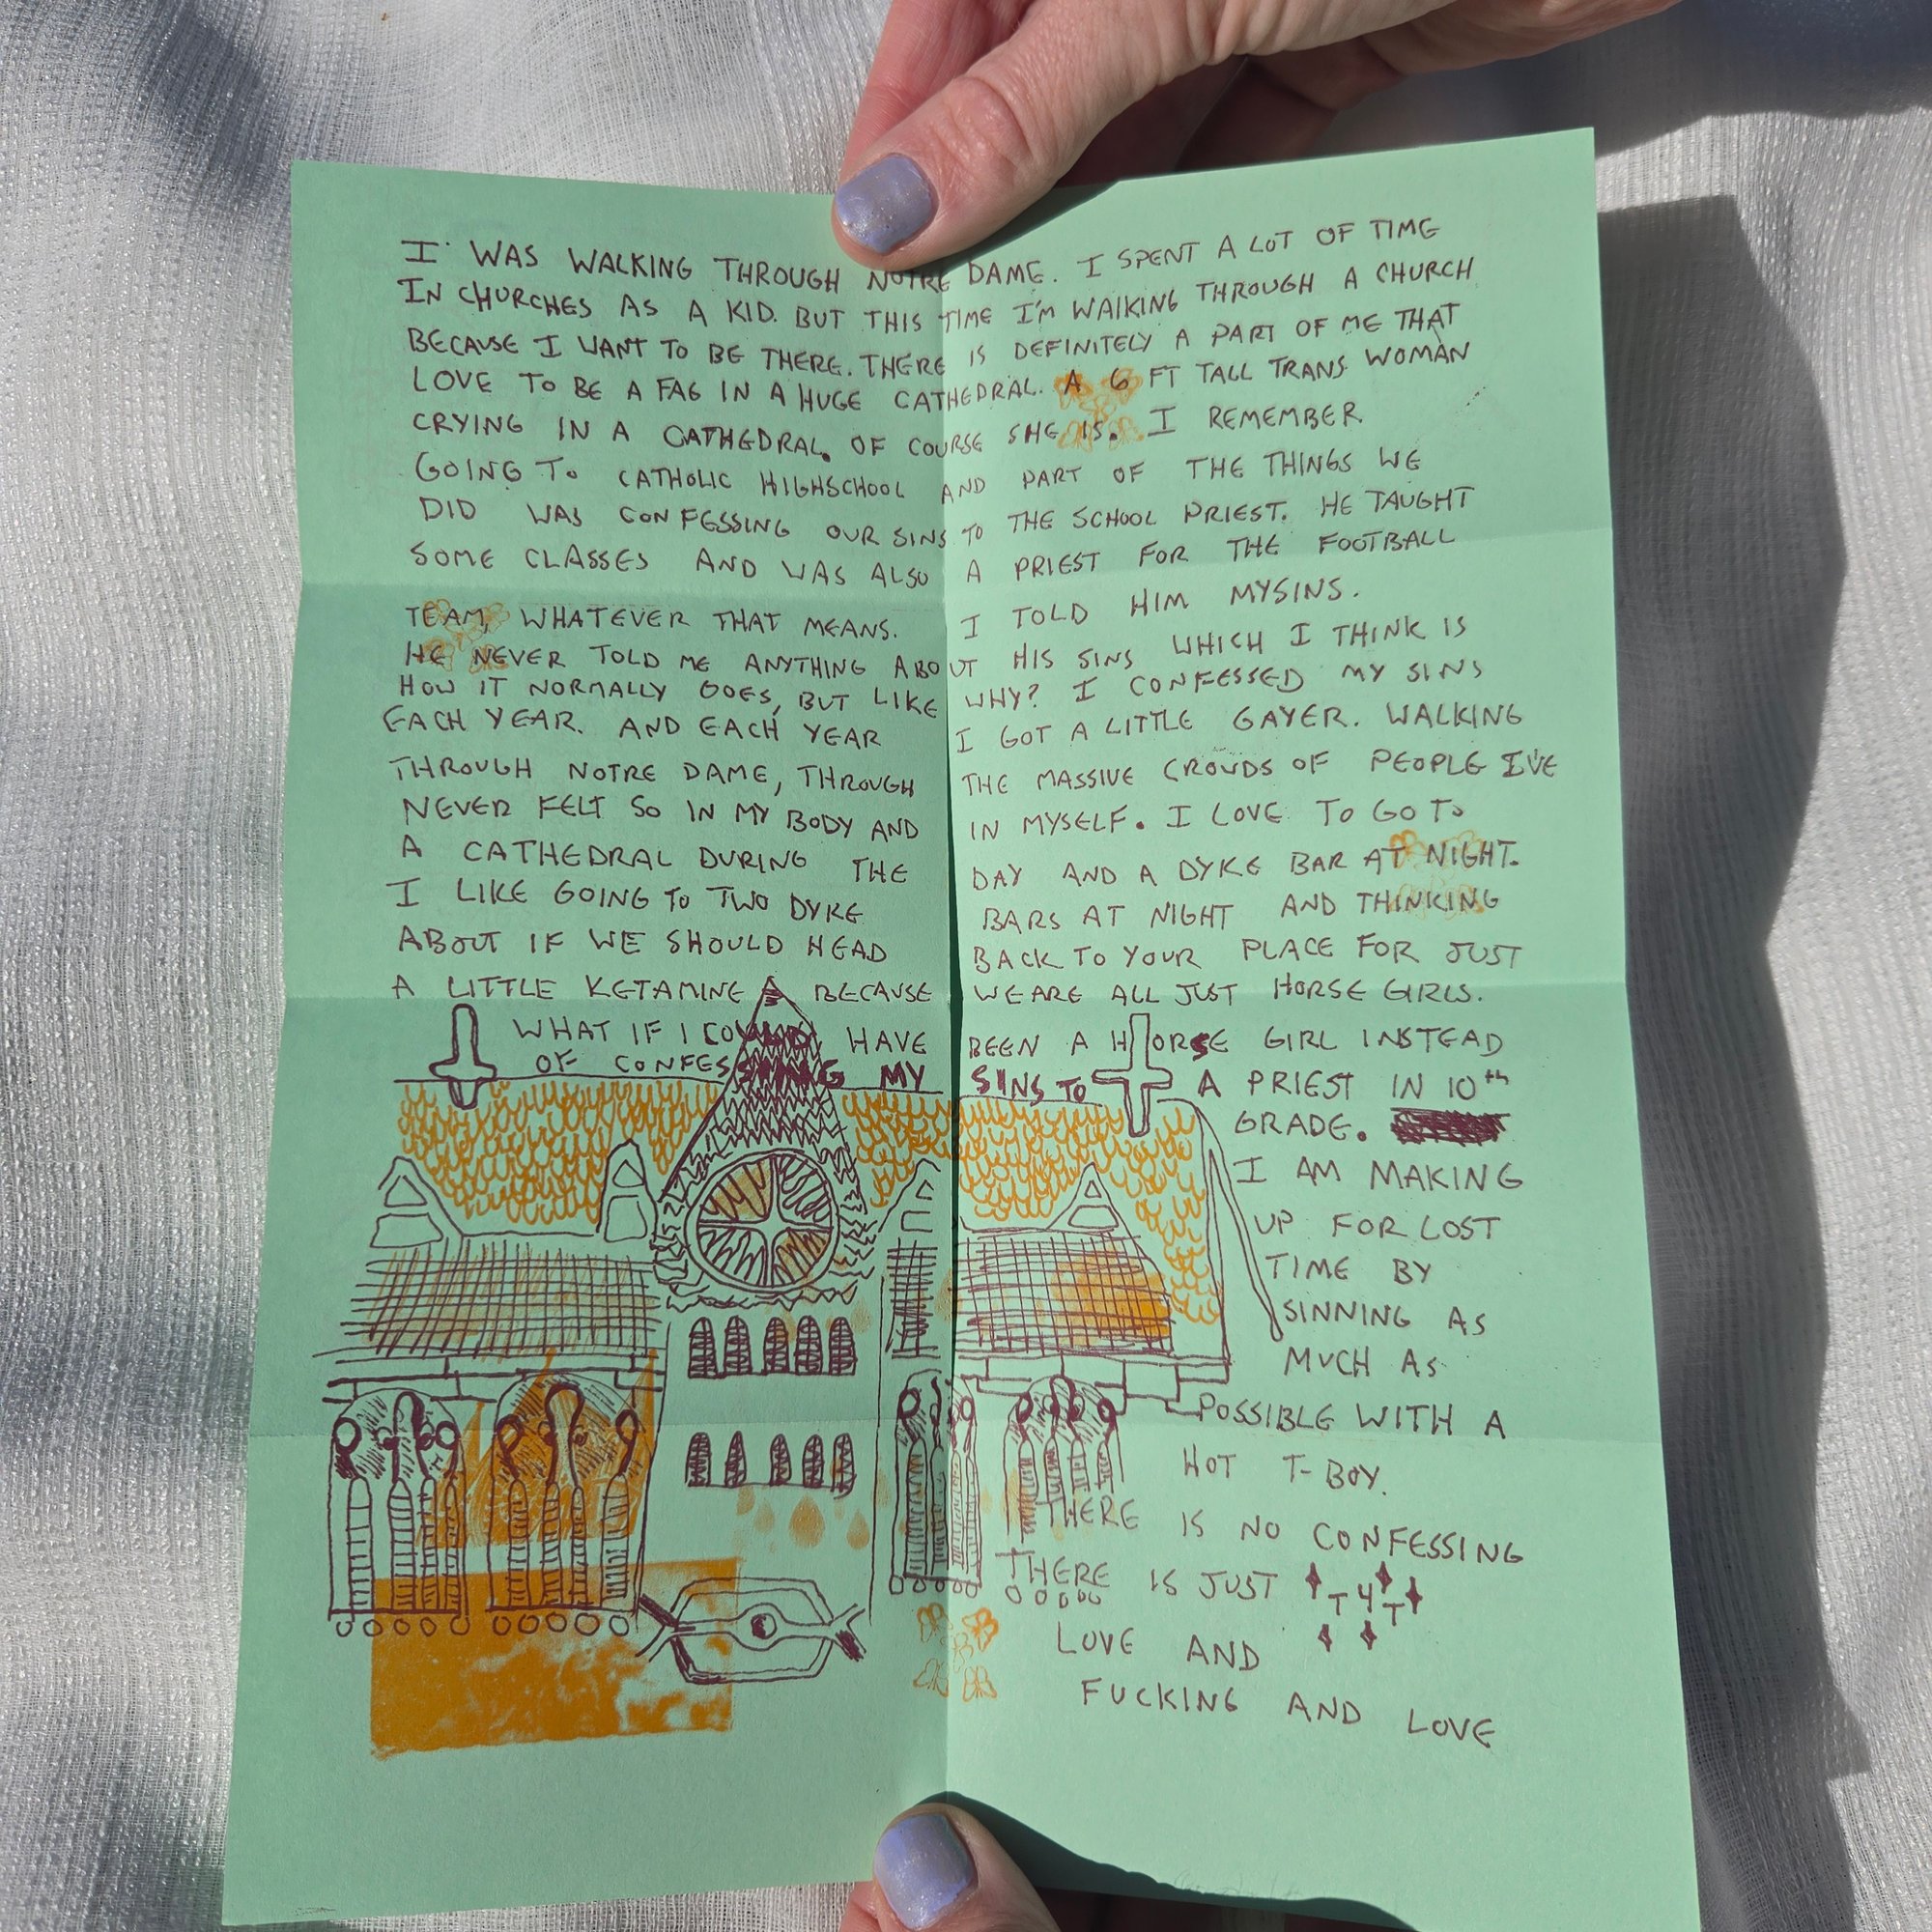 I WAS WALKING THROUGH NOTRE DAME. I SPENT A LOT OF TIME
IN CHURCHES AS A KID. BUT THIS TIME I'M WALKING THROUGH A CHURCH
BECAUSE I WANT TO BE THERE. THERE IS DEFINITELY A PART OF ME THAT
LOVE TO BE A FAG IN A HUGE CATHEDRAL. A 6 FT TALL TRANS WOMAN
CRYING IN A CATHEDRAL. OF COURSE SHE IS. I REMEMBER
GOING TO CATHOLIC HIGHSCHOOL AND PART OF THE THINGS WE
DID WAS CONFESSING OUR SINS TO THE SCHOOL PRIEST. HE TAUGHT
SOME CLASSES AND WAS ALSO A PRIEST FOR THE FOOTBALL
TEAM, WHATEVER THAT MEANS. I TOLD HIM MY SINS.
HE NEVER TOLD ME ANYTHING ABOUT HIS SINS WHICH I THINK IS
HOW IT NORMALLY GOES, BUT LIKE WHY? I CONFESSED MY SINS
EACH YEAR. AND EACH YEAR I GOT A LITTLE GAYER. WALKING
THROUGH NOTRE DAME, THROUGH THE MASSIVE CROWDS OF PEOPLE I'VE
NEVER FELT SO IN MY BODY AND IN MYSELF. I LOVE TO GO TO
A CATHEDRAL DURING THE DAY AND A DYKE BAR AT NIGHT.
I LIKE GOING TO TWO DYKE BARS AT NIGHT AND THINKING
ABOUT IF WE SHOULD HEAD BACK TO YOUR PLACE FOR JUST
A LITTLE KETAMINE BECAUSE WE ARE ALL JUST HORSE GIRLS.
WHAT IF I COULD HAVE BEEN A HORSE GIRL INSTEAD
OF CONFESSING MY SINS TO A PRIEST IN 10th
GRADE.
I AM MAKING
UP FOR LOST
TIME BY
SINNING AS
MUCH AS
POSSIBLE WITH A
HOT T-BOY.
THERE IS NO CONFESSING
THERE IS JUST T4T
LOVE AND
FUCKING AND LOVE